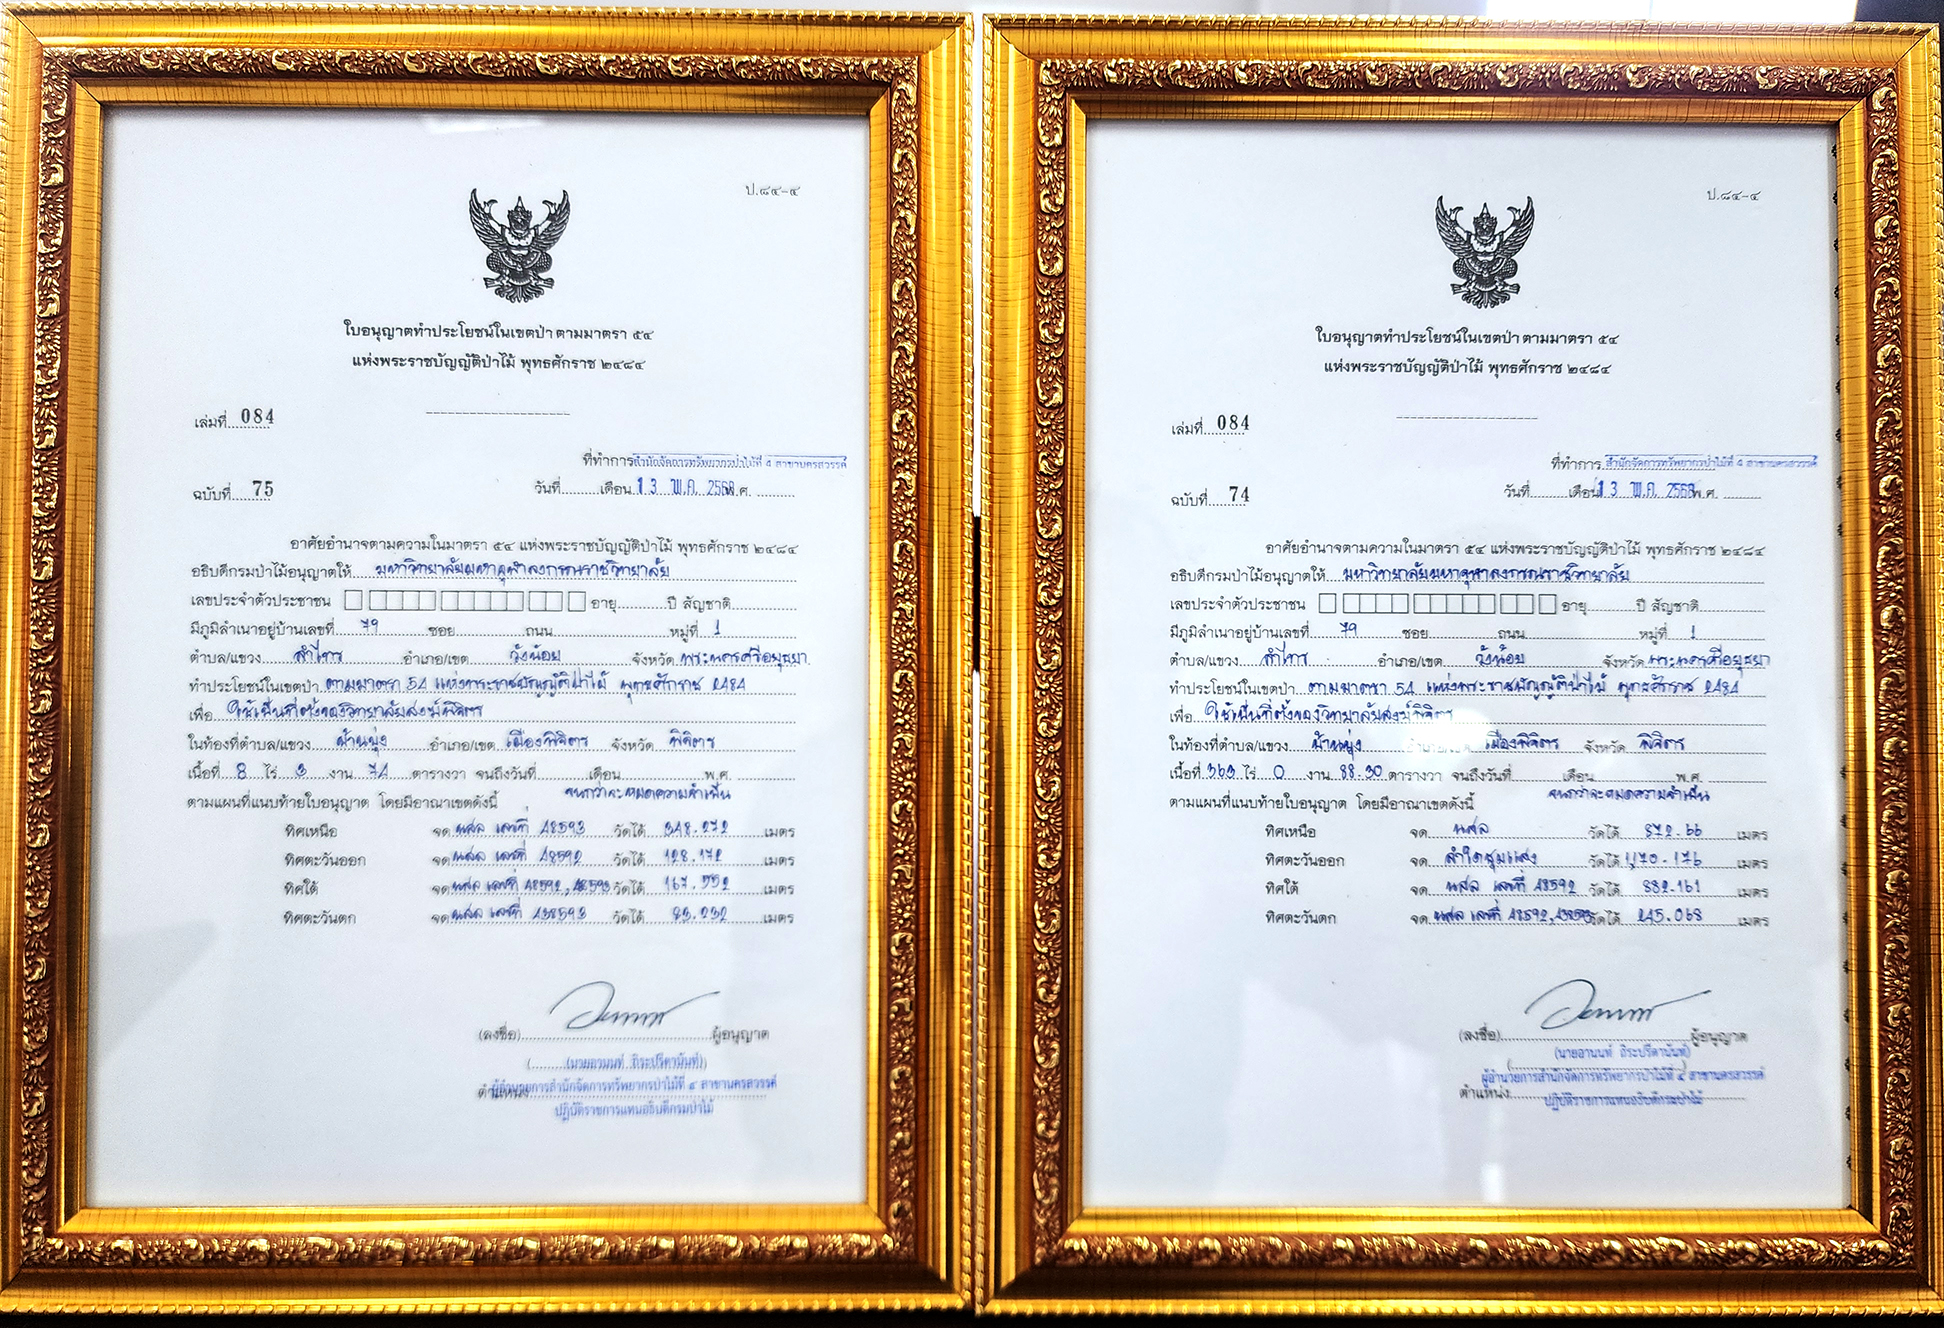 ป.๘๔-๔
ใบอนุญาตทำประโยชน์ในเขตป่า ตามมาตรา ๕๔
แห่งพระราชบัญญัติป่าไม้ พุทธศักราช ๒๔๘๔
เล่มที่ 084
ที่ทำการ สำนักจัดการทรัพยากรป่าไม้ที่ ๔ สาขานครสวรรค์
ฉบับที่ 75 วันที่ เดือน 13 พ.ค. 2568 พ.ศ.
อาศัยอำนาจตามความในมาตรา ๕๔ แห่งพระราชบัญญัติป่าไม้ พุทธศักราช ๒๔๘๔
อธิบดีกรมป่าไม้อนุญาตให้ มหาวิทยาลัยมหาจุฬาลงกรณราชวิทยาลัย
เลขประจำตัวประชาชน อายุ ปี สัญชาติ
มีภูมิลำเนาอยู่บ้านเลขที่ 79 ซอย ถนน หมู่ที่ 1
ตำบล/แขวง ลำไทร อำเภอ/เขต วังน้อย จังหวัด พระนครศรีอยุธยา
ทำประโยชน์ในเขตป่า ตามมาตรา 54 แห่งพระราชบัญญัติป่าไม้ พุทธศักราช 2484
เพื่อ ใช้เป็นที่ตั้งของวิทยาลัยสงฆ์พิจิตร
ในท้องที่ตำบล/แขวง บ้านบุ่ง อำเภอ/เขต เมืองพิจิตร จังหวัด พิจิตร
เนื้อที่ 8 ไร่ 3 งาน 74 ตารางวา จนถึงวันที่ เดือน พ.ศ.
จนกว่าจะหมดความจำเป็น
ตามแผนที่แนบท้ายใบอนุญาต โดยมีอาณาเขตดังนี้
ทิศเหนือ จด นสล เลขที่ 48593 วัดได้ 348.272 เมตร
ทิศตะวันออก จด นสล เลขที่ 48592 วัดได้ 128.172 เมตร
ทิศใต้ จด นสล เลขที่ 48592, 48593 วัดได้ 167.552 เมตร
ทิศตะวันตก จด นสล เลขที่ วัดได้ 83.232 เมตร
(ลงชื่อ) ผู้อนุญาต
(นายอานนท์ ถิระปรีดานันท์)
ตำแหน่ง ผู้อำนวยการสำนักจัดการทรัพยากรป่าไม้ที่ ๔ สาขานครสวรรค์
ปฏิบัติราชการแทนอธิบดีกรมป่าไม้
ป.๘๔-๔
ใบอนุญาตทำประโยชน์ในเขตป่า ตามมาตรา ๕๔
แห่งพระราชบัญญัติป่าไม้ พุทธศักราช ๒๔๘๔
เล่มที่ 084
ที่ทำการ สำนักจัดการทรัพยากรป่าไม้ที่ ๔ สาขานครสวรรค์
ฉบับที่ 74 วันที่ เดือน 13 พ.ค. 2568 พ.ศ.
อาศัยอำนาจตามความในมาตรา ๕๔ แห่งพระราชบัญญัติป่าไม้ พุทธศักราช ๒๔๘๔
อธิบดีกรมป่าไม้อนุญาตให้ มหาวิทยาลัยมหาจุฬาลงกรณราชวิทยาลัย
เลขประจำตัวประชาชน อายุ ปี สัญชาติ
มีภูมิลำเนาอยู่บ้านเลขที่ 79 ซอย ถนน หมู่ที่ 1
ตำบล/แขวง ลำไทร อำเภอ/เขต วังน้อย จังหวัด พระนครศรีอยุธยา
ทำประโยชน์ในเขตป่า ตามมาตรา 54 แห่งพระราชบัญญัติป่าไม้ พุทธศักราช 2484
เพื่อ ใช้เป็นที่ตั้งของวิทยาลัยสงฆ์พิจิตร
ในท้องที่ตำบล/แขวง บ้านบุ่ง อำเภอ/เขต เมืองพิจิตร จังหวัด พิจิตร
เนื้อที่ 363 ไร่ 0 งาน 88.30 ตารางวา จนถึงวันที่ เดือน พ.ศ.
จนกว่าจะหมดความจำเป็น
ตามแผนที่แนบท้ายใบอนุญาต โดยมีอาณาเขตดังนี้
ทิศเหนือ จด นสล วัดได้ 872.66 เมตร
ทิศตะวันออก จด วัดได้ 1,170.176 เมตร
ทิศใต้ จด นสล เลขที่ 48592 วัดได้ 882.161 เมตร
ทิศตะวันตก จด นสล เลขที่ 48592, วัดได้ 245.068 เมตร
(ลงชื่อ) ผู้อนุญาต
(นายอานนท์ ถิระปรีดานันท์)
ผู้อำนวยการสำนักจัดการทรัพยากรป่าไม้ที่ ๔ สาขานครสวรรค์
ตำแหน่ง ปฏิบัติราชการแทนอธิบดีกรมป่าไม้